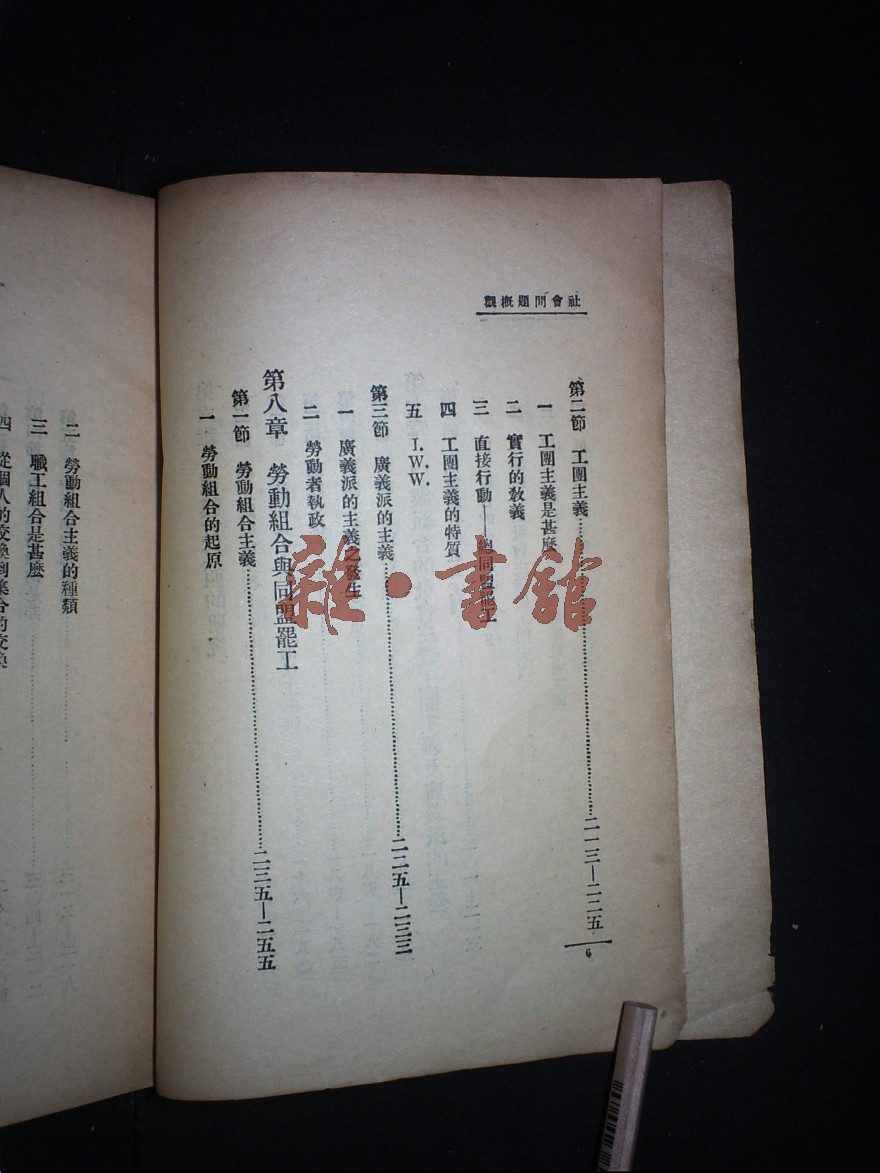 社會問題概觀
第二節 工團主義……二一三—二二五
一 工團主義是甚麼
二 實行的教義
三 直接行動——總同盟罷工
四 工團主義的特質
五 I. W. W.
第三節 廣義派的主義……二二五—二三三
一 廣義派的主義之發生
二 勞動者執政
第八章 勞動組合與同盟罷工
第一節 勞動組合主義……二三五—二五五
一 勞動組合的起原
6
二 勞動組合主義的種類
三 職工組合是甚麼
四 從個人的交換到集合的交換
雜·書館